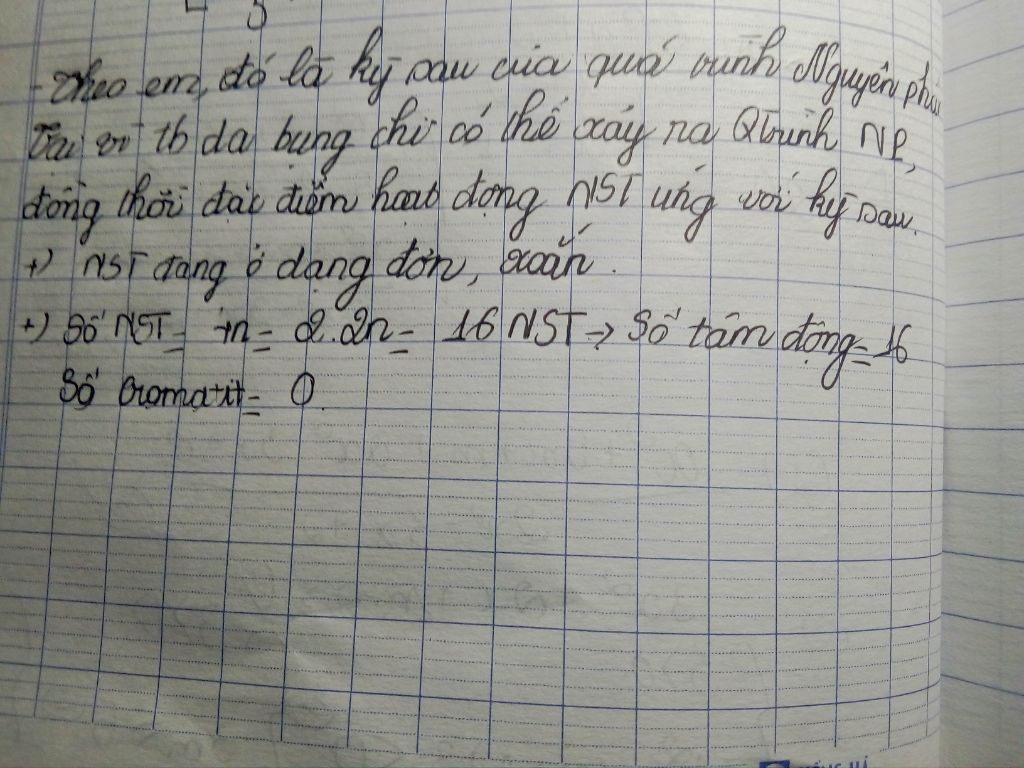 - Theo em, đó là kỳ sau của quá trình Nguyên phân
Tại vì tb da bụng chỉ có thể xảy ra Qtrình NP,
đồng thời đặc điểm hoạt động NST ứng với kỳ sau.
+) NST đang ở dạng đơn, xoắn.
+) Số NST = 4n = 2.2n = 16 NST → Số tâm động = 16
Số cromatit = 0